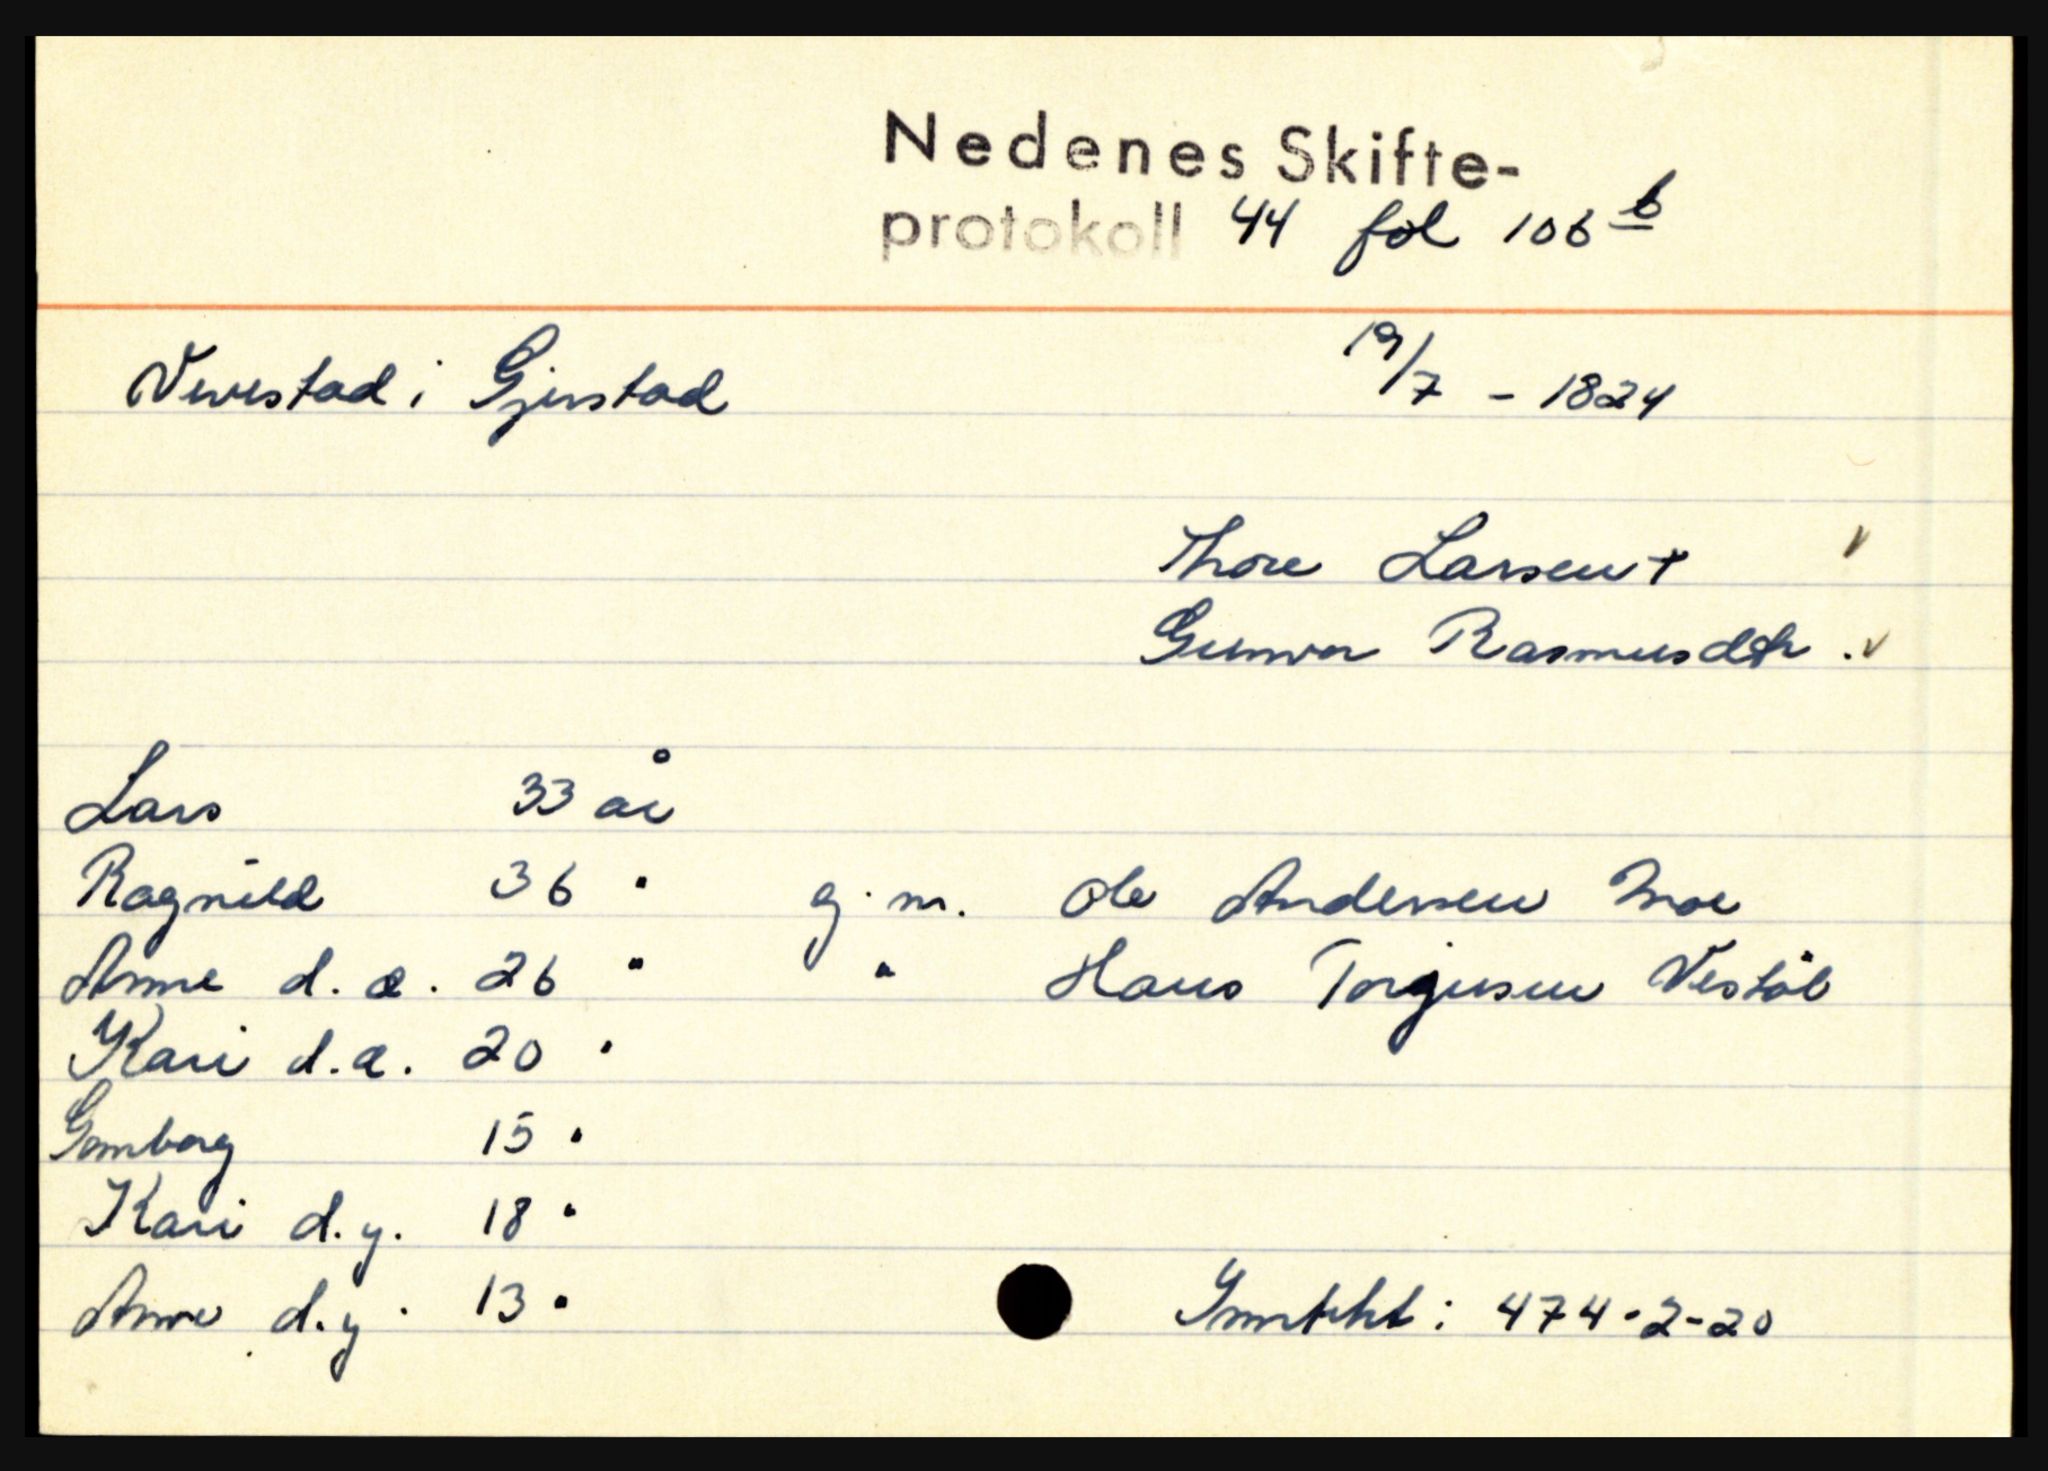 Nedenes Skifte-
protokoll 44 fol 106 b
Vevestad i Gjerstad 19/7 - 1824
Thore Larsen +
Gunvor Rasmusdtr.
Lars 33 år
Ragnild 36 " g. m. Ole Anderssen Moe
Anne d. e. 26 " " Hans Torgjusen Vestöl
Kari d. e. 20 "
Gunborg 15 "
Kari d. y. 18 "
Anne d. y. 13 "
: 474-2-20